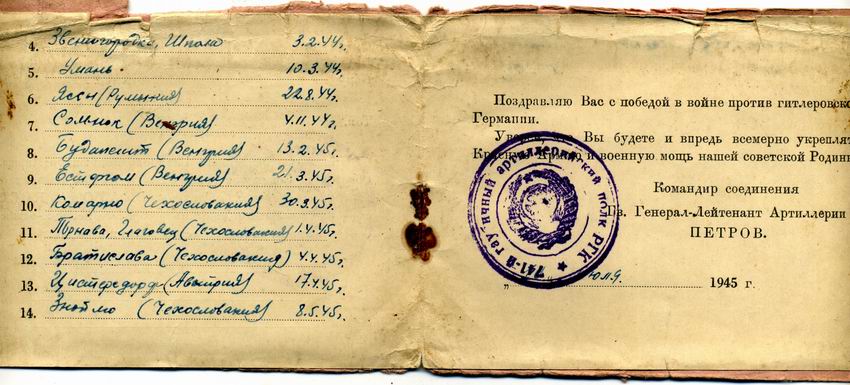 4. Звенигородка, Шпола 3.2.44г.
5. Умань 10.3.44г.
6. Яссы (Румыния) 22.8.44г.
7. Сольнок (Венгрия) 4.11.44г.
8. Будапешт (Венгрия) 13.2.45г.
9. Естергом (Венгрия) 21.3.45г.
10. Комарно (Чехословакия) 30.3.45г.
11. Трнава, Глоговец (Чехословакия) 1.4.45г.
12. Братислава (Чехословакия) 4.4.45г.
13. Цистерсдорф (Австрия) 17.4.45г.
14. Зноймо (Чехословакия) 8.5.45г.
Поздравляю Вас с победой в войне против гитлеровско
Германии.
Вы будете и впредь всемерно укреплят
Красную Армию и военную мощь нашей советской Родин
Командир соединения
Гв. Генерал-Лейтенант Артиллерии
ПЕТРОВ.
1945 г.
741-й гаубичный артиллерийский полк РГК